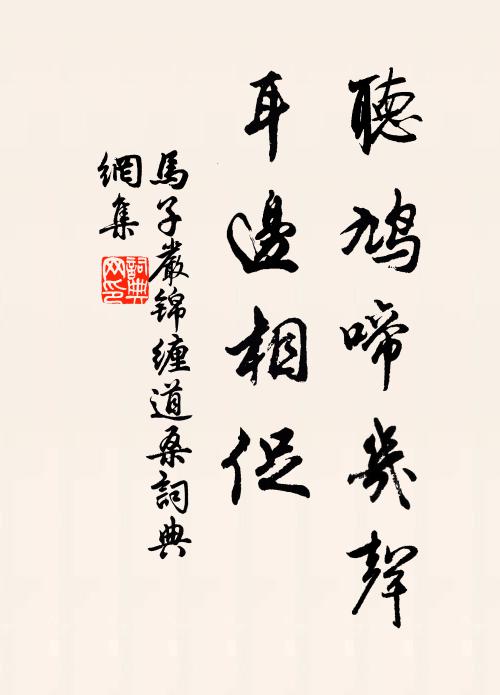 聽鳩啼幾聲
耳邊相促
馬子嚴錦纏道桑詞典
網集
詞典
网印